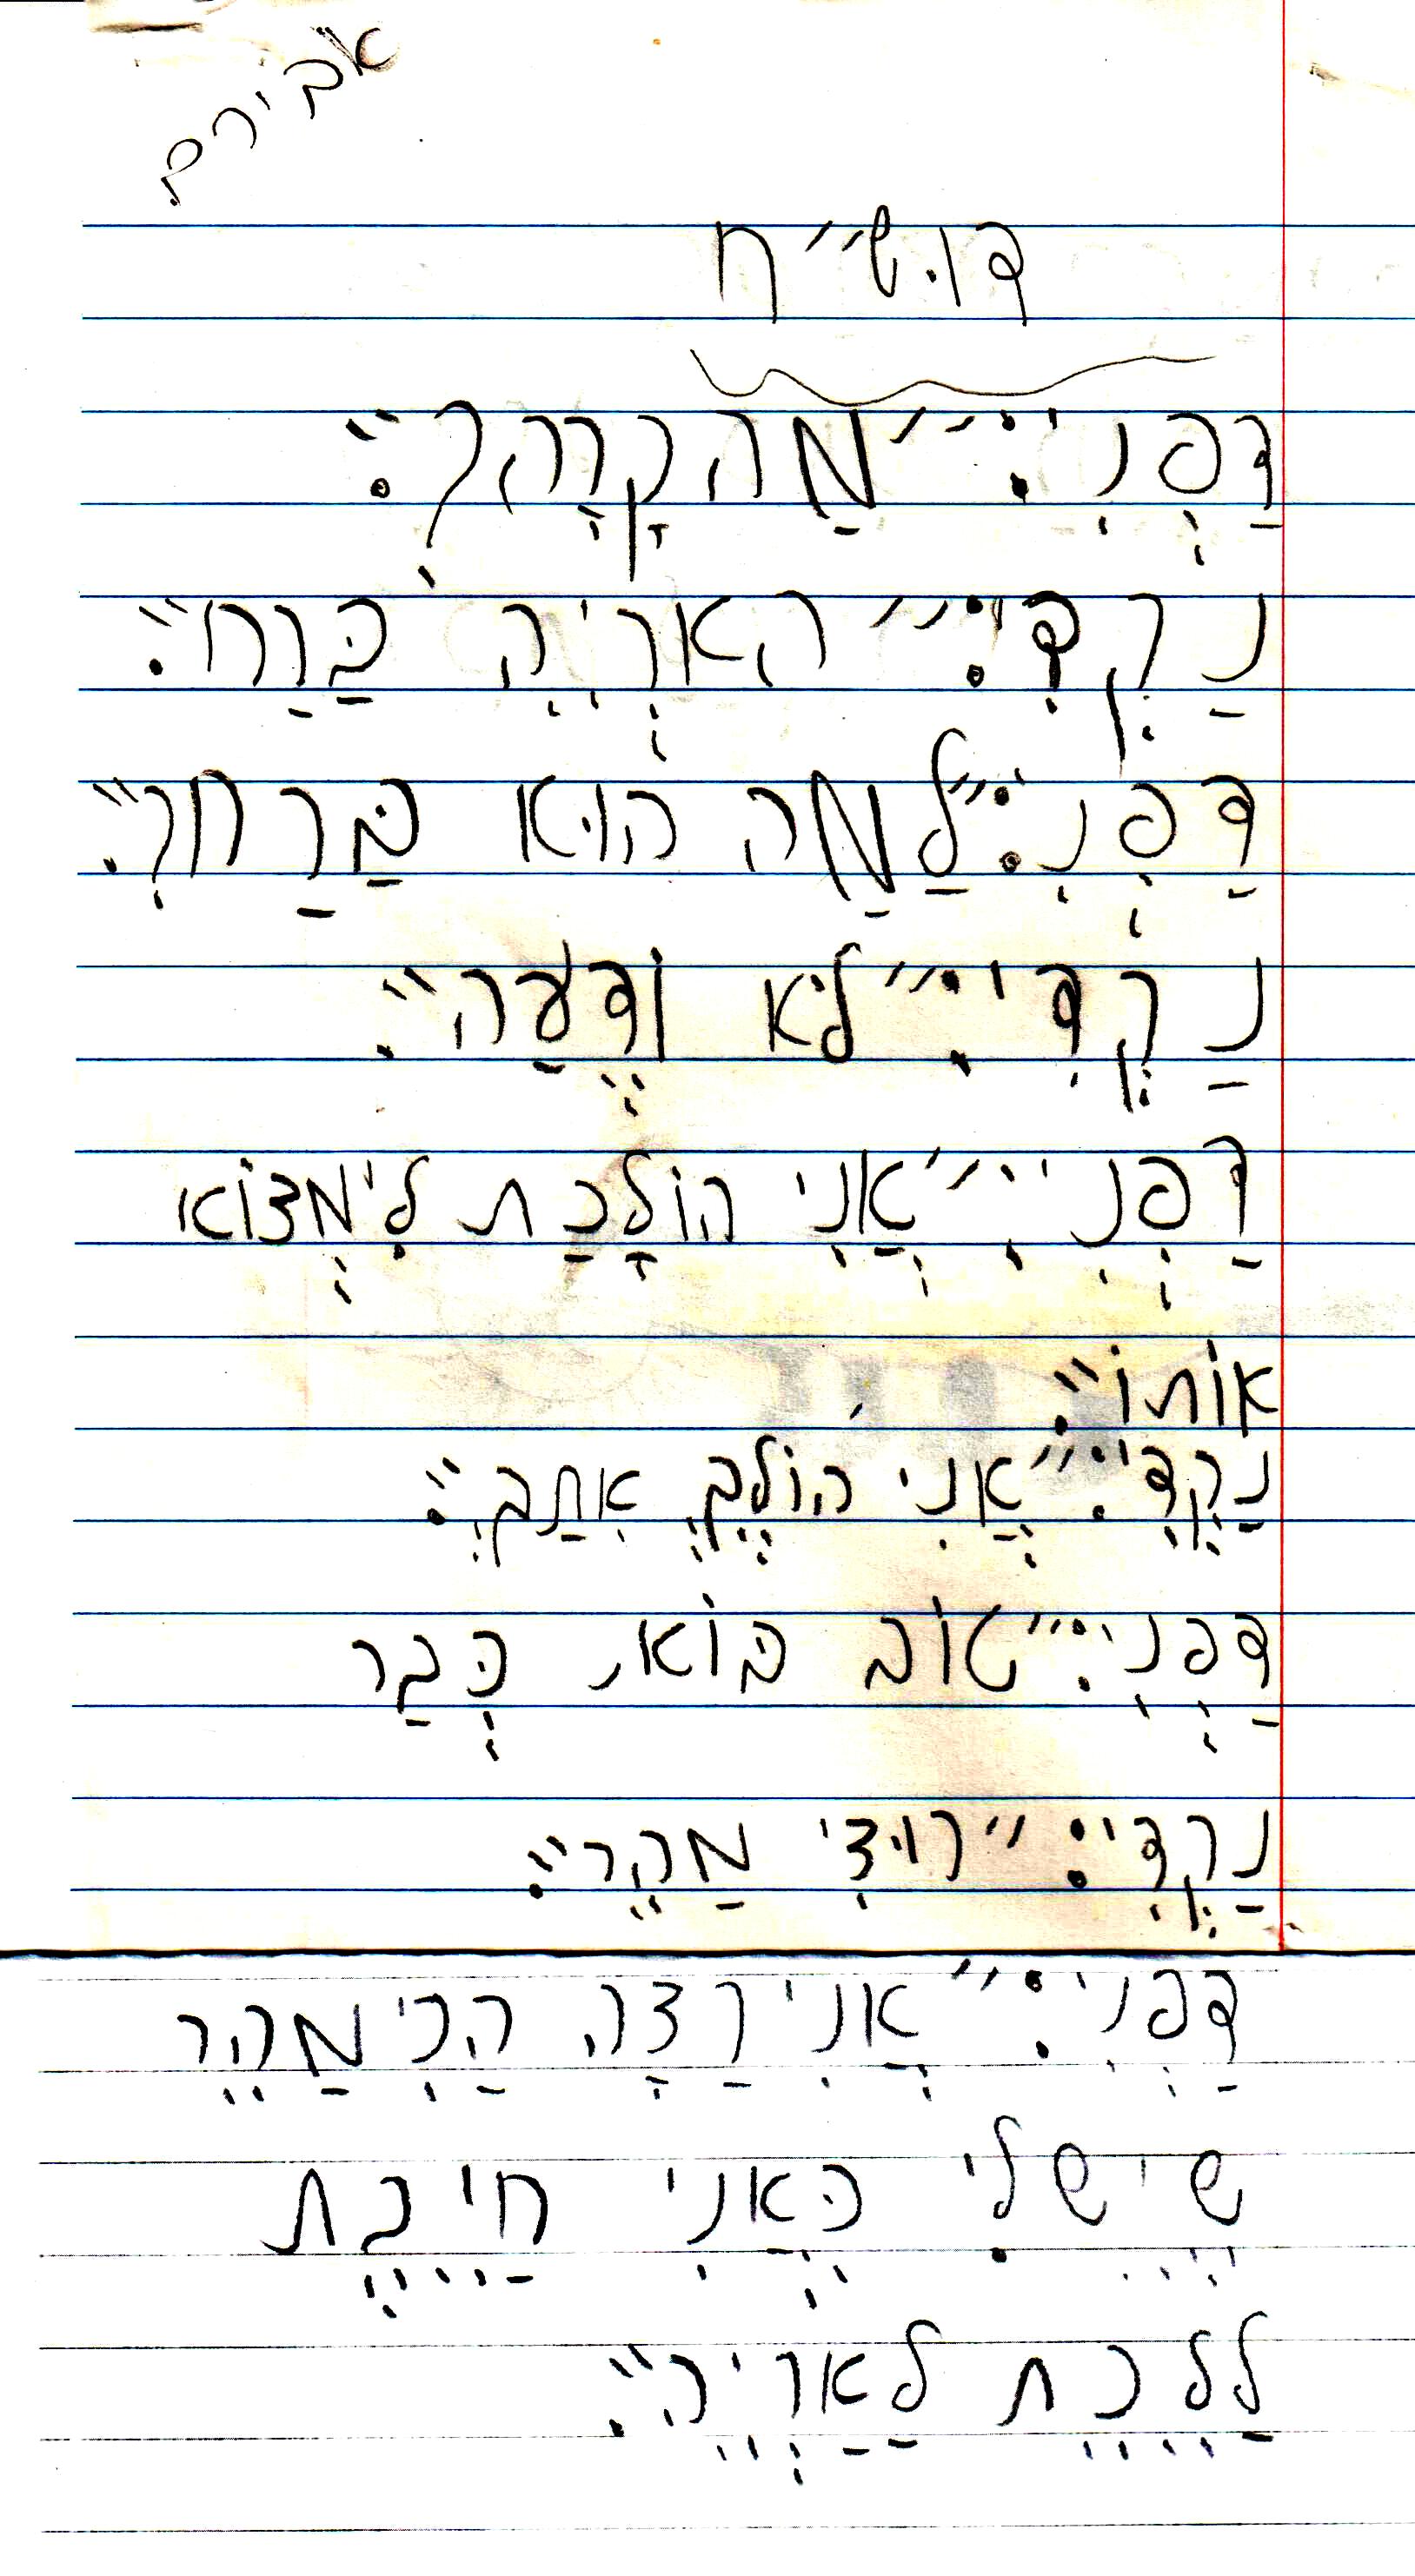 אבירם
דו.ש״ח
דַפְנִי: ״מַה קָרָה לְךָ״.
נַקְדִי: ״האַרְיֵה בַּרַח״.
דַפְנִי: ״לַמַה הוּא בַּרַח לְךָ״.
נַקְדִי: ״לֹא יוֹדֵעַה״.
דַפְנִי: ״אֲנִי הוֹלָכַת לִימְצוֹא
אוֹתוֹ״.
נַקְדִי: ״אֲנִי הוֹלֵךְ אִתַךְ״.
דַפְנִי: ״טוֹב בּוֹא, כְּבַר
נַקְדִי: ״רוּצִי מַהֵר״.
דַפְנִי: ״אֲנִי רַצָה הַכִי מַהֵר
שֶיֵש לִי כֶּאֲנִי חַיֵבֶת
לַלֵכֵת לַאַרְיֵה״.